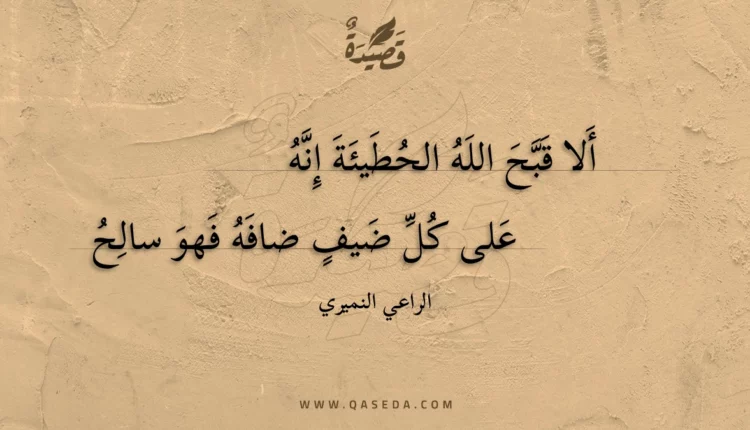 قَصِيدَةٌ
أَلا قَبَّحَ اللَهُ الحُطَيئَةَ إِنَّهُ
عَلى كُلِّ ضَيفٍ ضافَهُ فَهوَ سالِحُ
الراعي النميري
WWW.QASEDA.COM